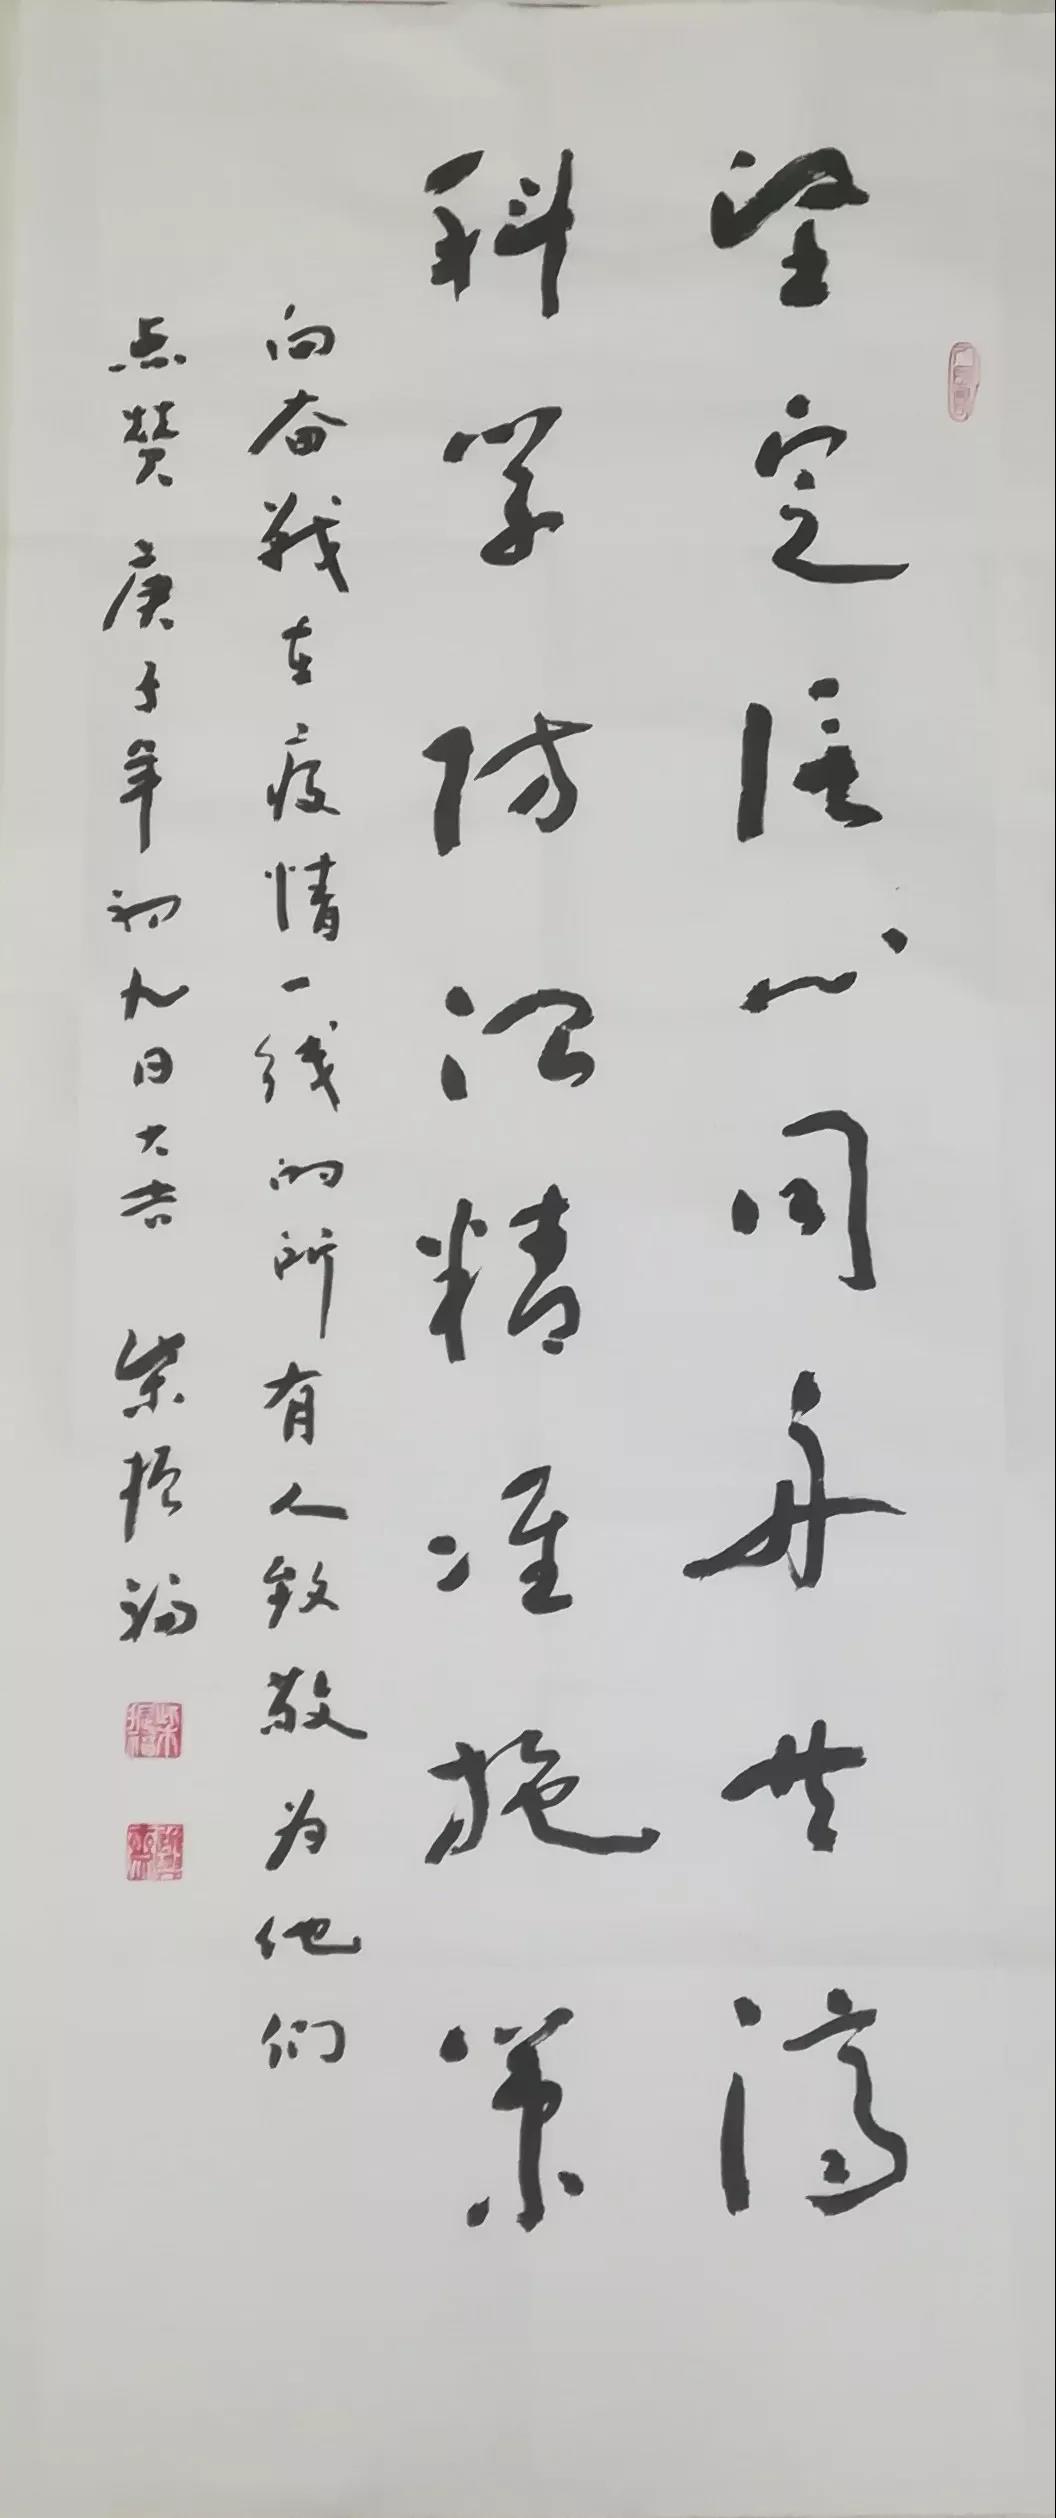 坚定信心同舟共济
科学防治精准施策
向奋战在疫情一线的所有人致敬为他们
点赞 庚子年初九日大吉 柴振福